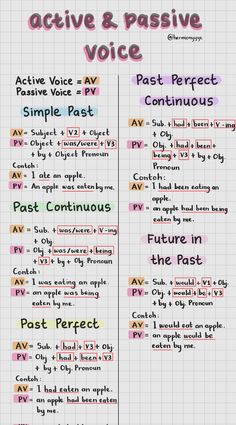 active & passive
voice
@hermionyyys
Active Voice = AV
Passive Voice = PV
Simple Past
AV = Subject + V2 + Object
PV = Object + was/were + V3
+ by + Object Pronoun
Contoh:
AV = I ate an apple.
PV = An apple was eaten by me.
Past Continuous
AV = Sub. + was/were + V-ing
+ Obj.
PV = Obj. + was/were + being
+ V3 + by + Obj. Pronoun
Contoh:
AV = I was eating an apple.
PV = an apple was being
eaten by me.
Past Perfect
AV = Sub. + had + V3 + Obj.
PV = Obj. + had + been + V3
+ by + Obj. Pronoun
Contoh:
AV = I had eaten an apple.
PV = an apple had been eaten
by me.
Past Perfect
Continuous
AV = Sub. + had + been + V-ing
+ Obj.
PV = Obj. + had + been +
being + V3 + by + Obj.
Pronoun
Contoh:
AV = I had been eating an
apple.
PV = an apple had been being
eaten by me.
Future in
the Past
AV = Sub. + would + V1 + Obj.
PV = Obj. + would + be + V3
+ by + Obj. Pronoun
Contoh:
AV = I would eat an apple.
PV = an apple would be
eaten by me.